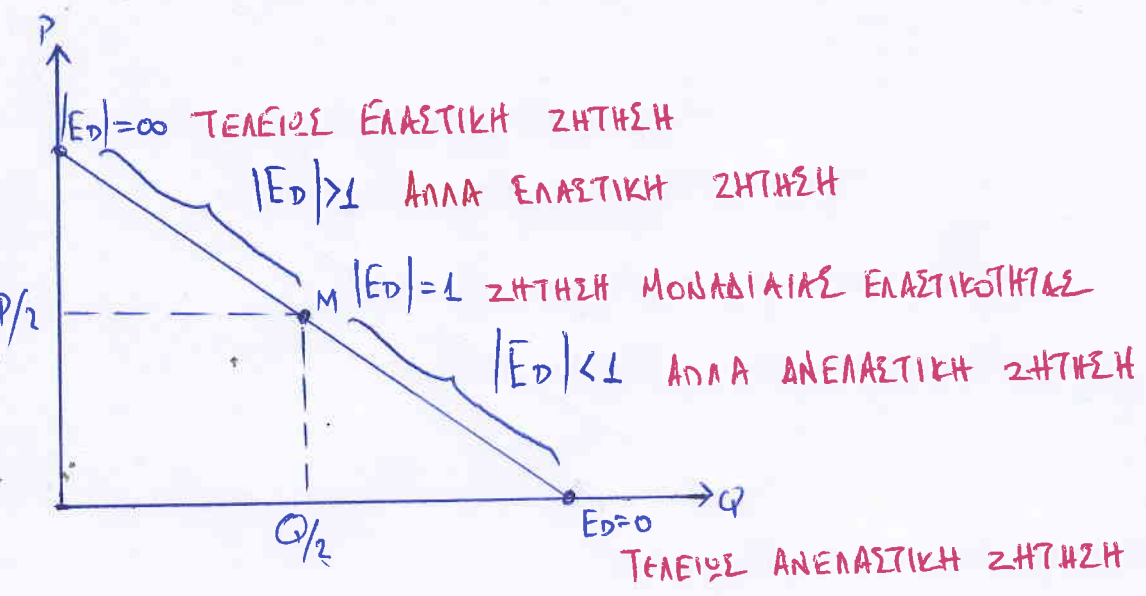 P
|ED|=∞ ΤΕΛΕΙΩΣ ΕΛΑΣΤΙΚΗ ΖΗΤΗΣΗ
|ED|>1 ΑΠΛΑ ΕΛΑΣΤΙΚΗ ΖΗΤΗΣΗ
M |ED|=1 ΖΗΤΗΣΗ ΜΟΝΑΔΙΑΙΑΣ ΕΛΑΣΤΙΚΟΤΗΤΑΣ
P/2
|ED|<1 ΑΠΛΑ ΑΝΕΛΑΣΤΙΚΗ ΖΗΤΗΣΗ
Q
Q/2
ED=0
ΤΕΛΕΙΩΣ ΑΝΕΛΑΣΤΙΚΗ ΖΗΤΗΣΗ